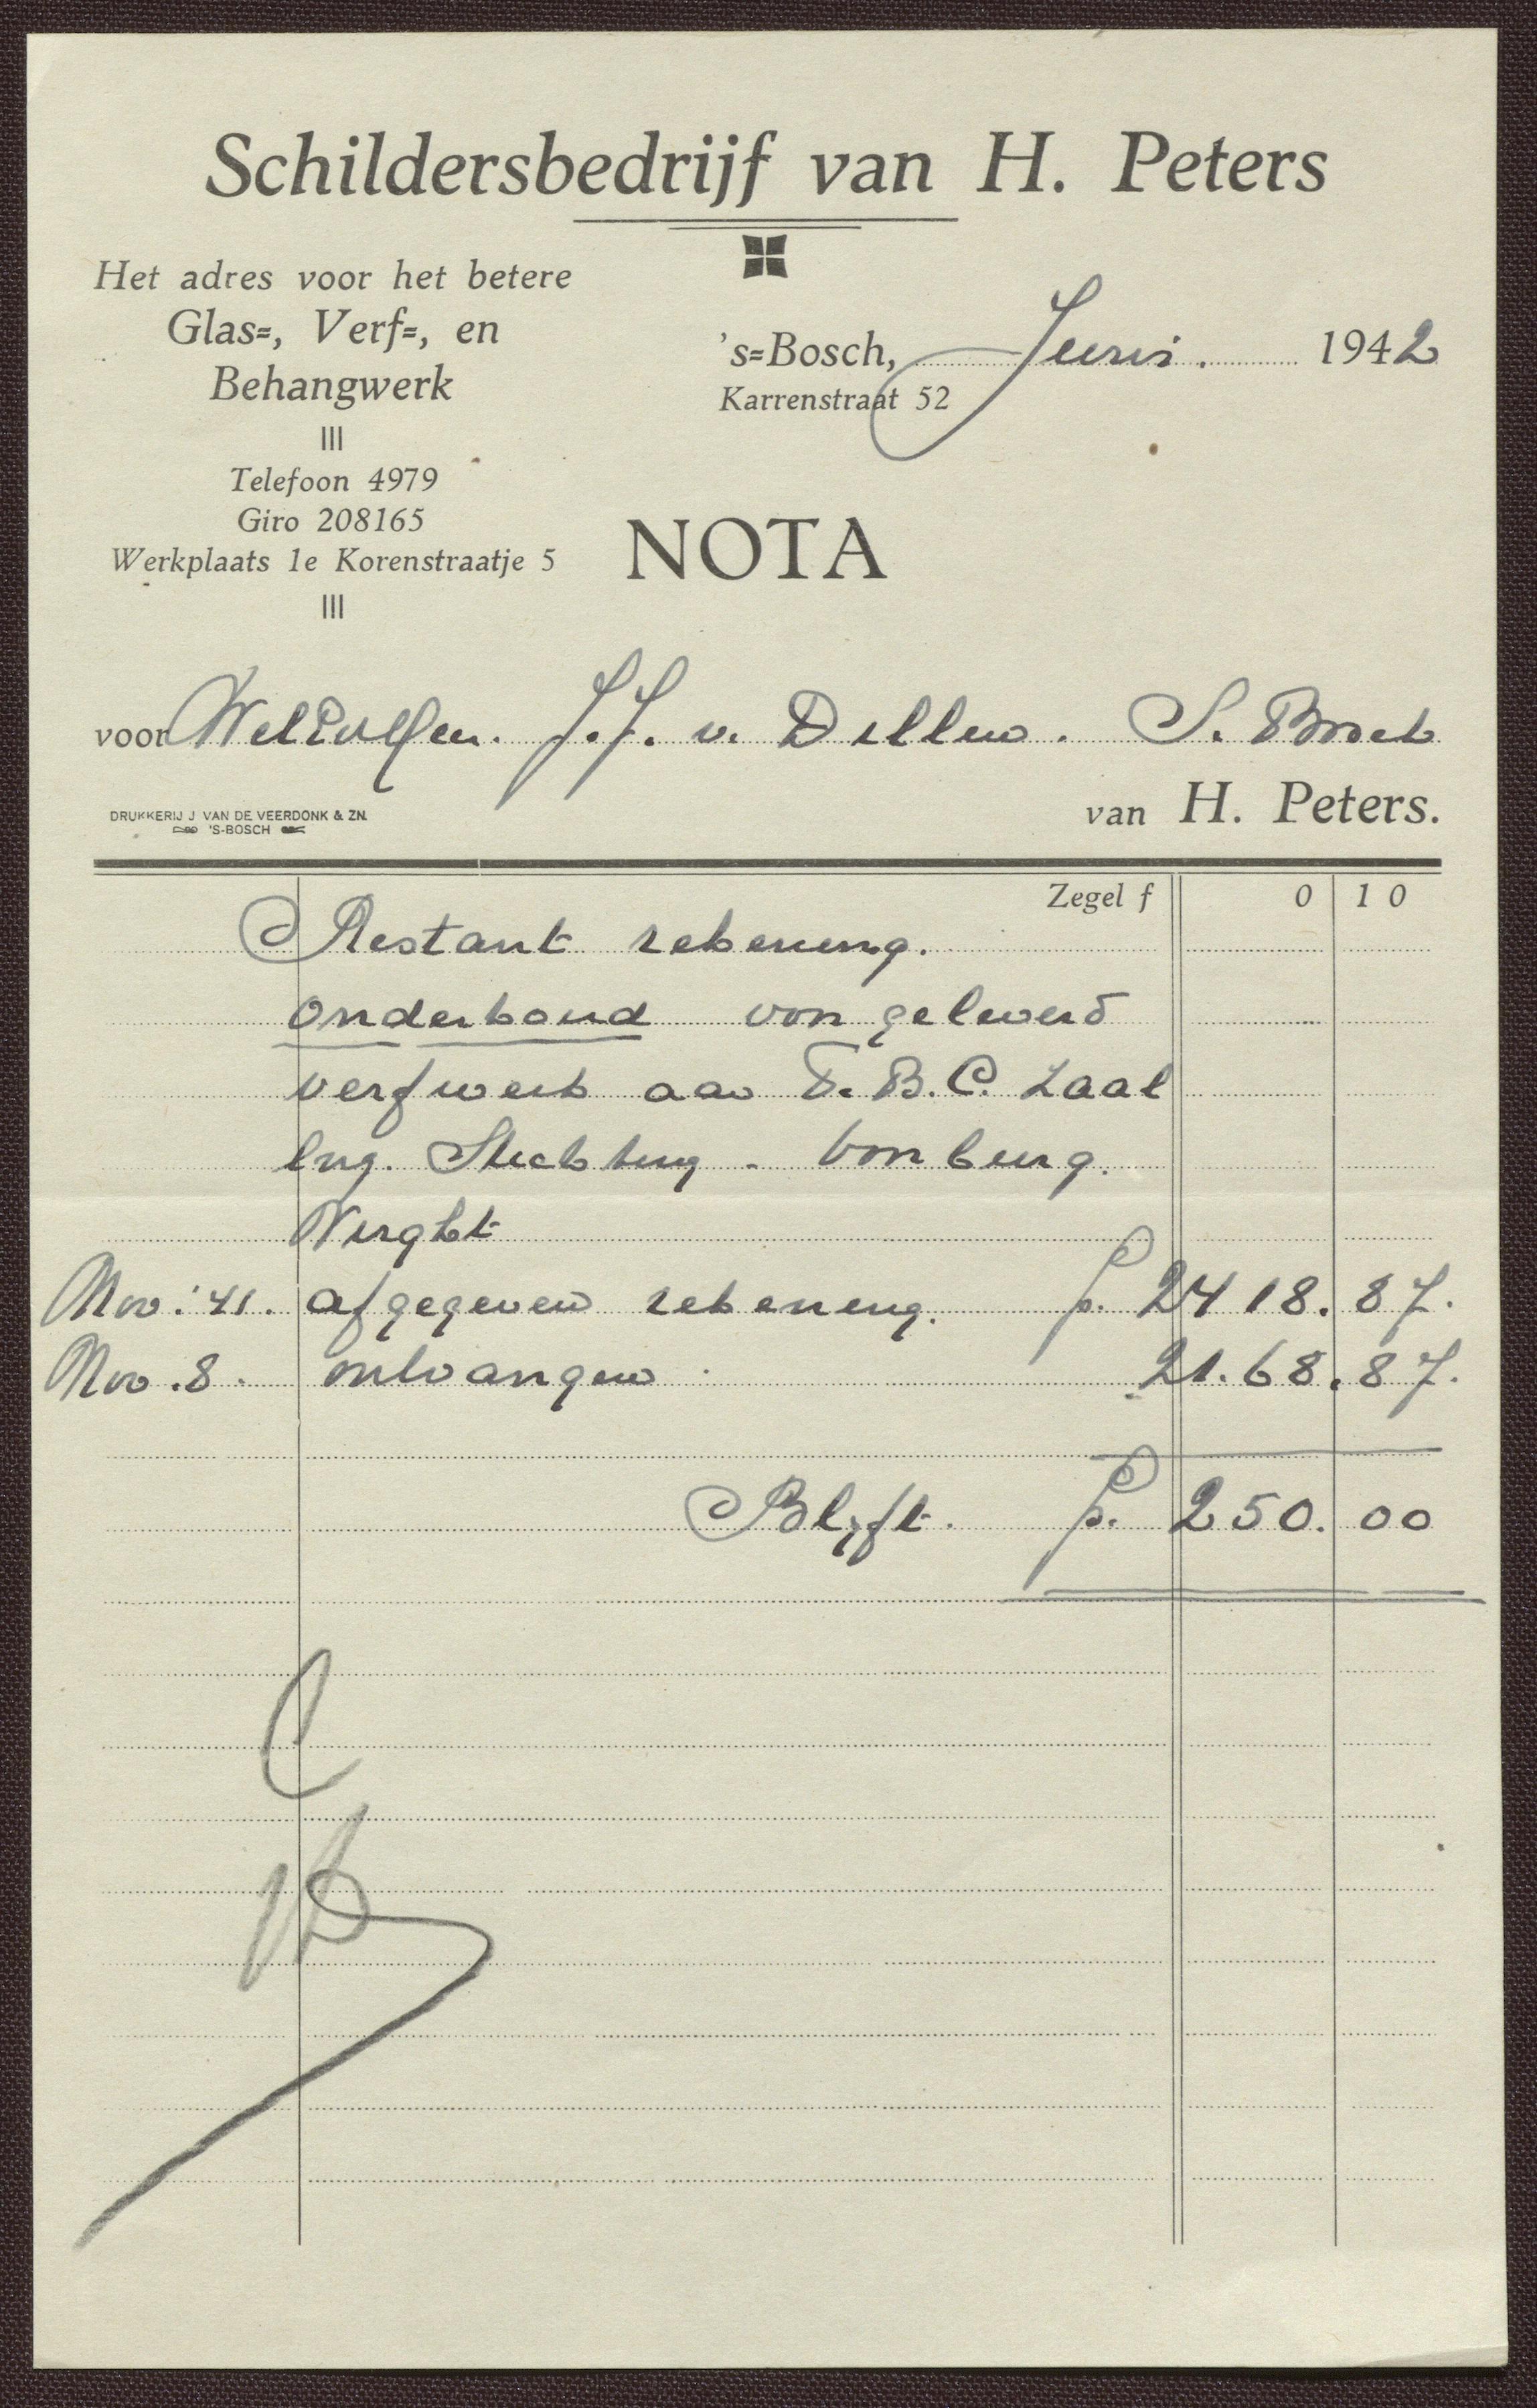 Schildersbedrijf van H. Peters
Het adres voor het betere
Glas=, Verf=, en
Behangwerk
Telefoon 4979
Giro 208165
Werkplaats 1e Korenstraatje 5
's=Bosch, Juni. 1942
Karrenstraat 52
NOTA
voor J.J. v. Dillen. S. Bosch
DRUKKERIJ J VAN DE VEERDONK & ZN.
'S-BOSCH
van H. Peters.
Zegel f 0 10
Restant rekening.
onderhoud van geleverd
verfwerk aan B.C. Zaal
Stichting.
Vught
Nov. '41. afgegeven rekening. f. 2418.87.
Nov. 8. ontvangen. 21.68.87.
Blyft. f. 250.00